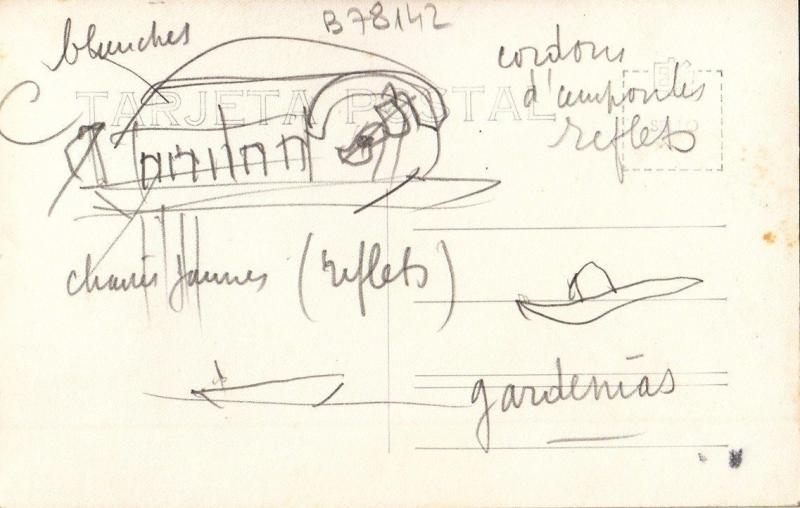 B78142
blanches
cordons
d'ampoules
reflets
TARJETA POSTAL
chaises jaunes (reflets)
gardenias